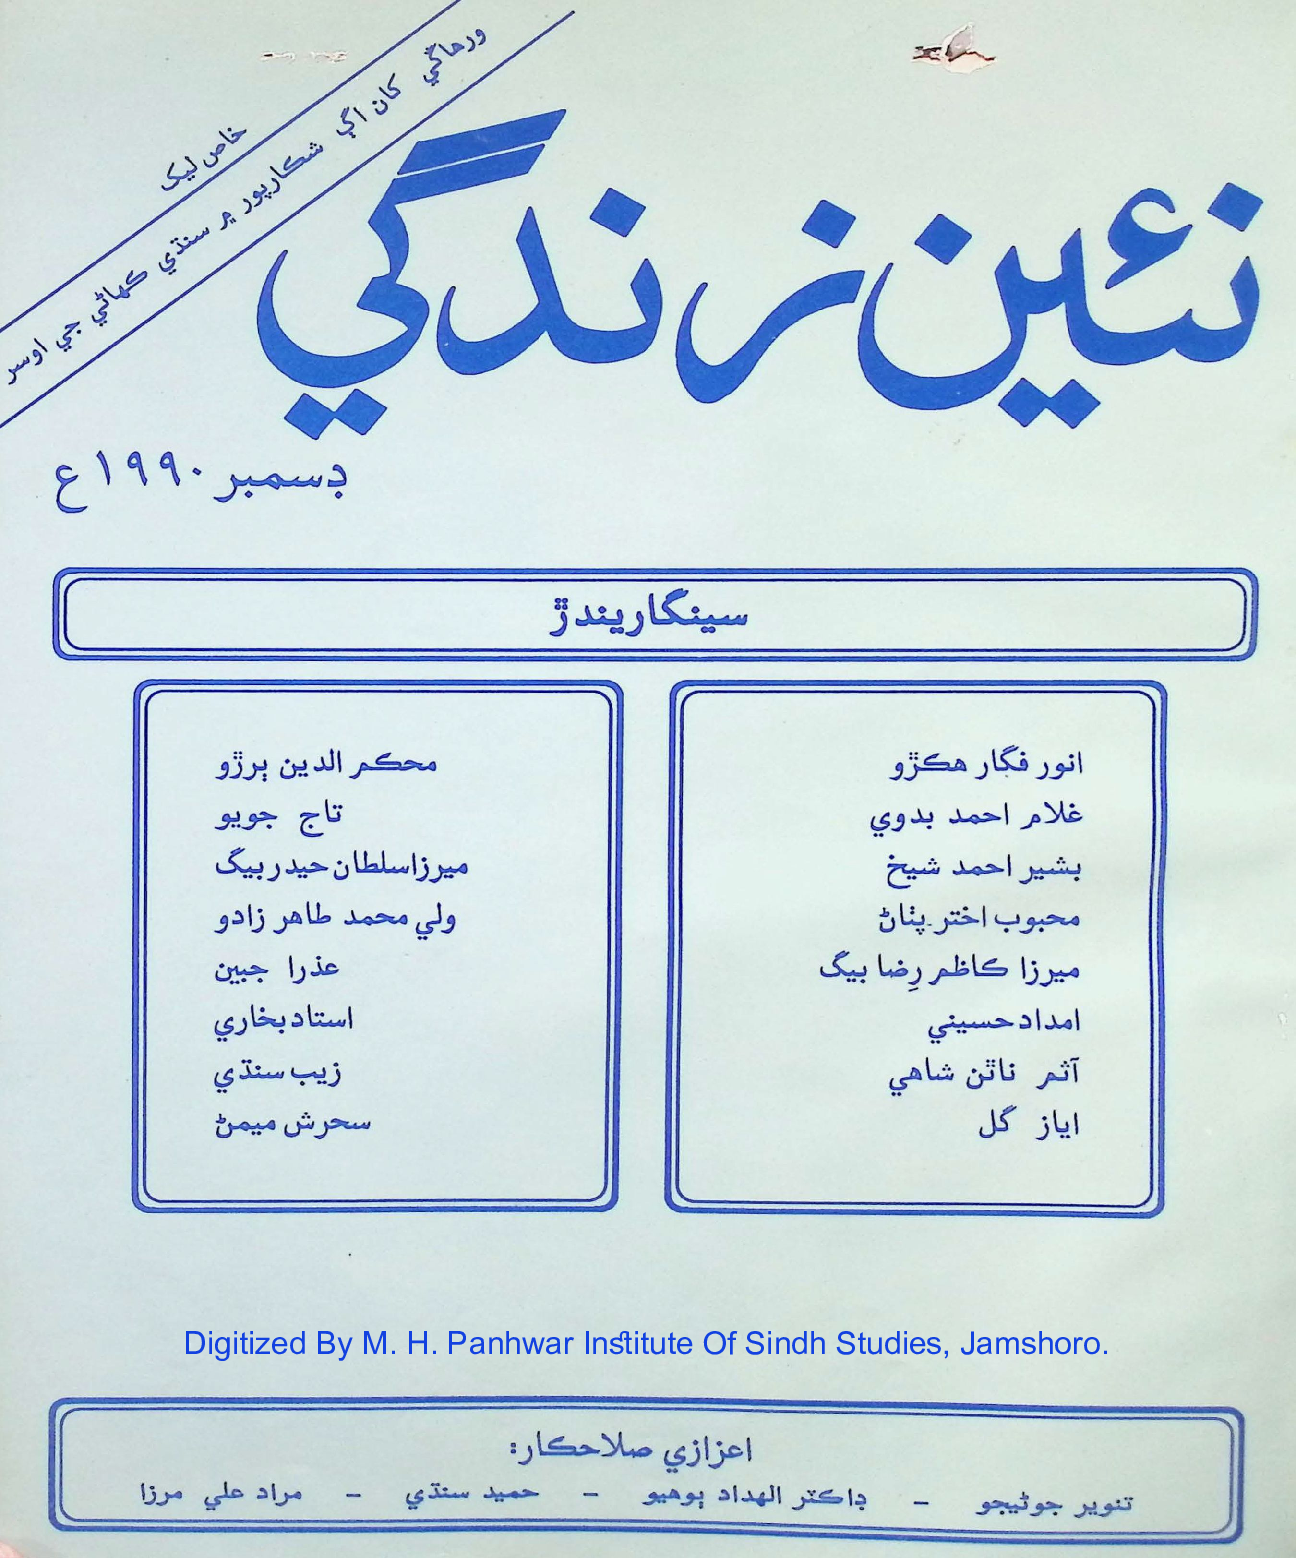 خاص ليک
ورهاڱي کان اڳ شڪارپور ۾ سنڌي ڪهاڻي جي اوسر
نئين زندگي
ڊسمبر ١٩٩٠ع
سينگاريندڙ
انور فگار هڪڙو
غلام احمد بدوي
بشير احمد شيخ
محبوب اختر پٺاڻ
ميرزا ڪاظم رِضا بيگ
امداد حسيني
آثم ناٿن شاهي
اياز گل
محڪم الدين ٻرڙو
تاج جويو
ميرزا سلطان حيدر بيگ
ولي محمد طاهر زادو
عذرا جبين
استاد بخاري
زيب سنڌي
سحرش ميمڻ
Digitized By M. H. Panhwar Institute Of Sindh Studies, Jamshoro.
اعزازي صلاحڪار:
تنوير جوڻيجو - ڊاڪٽر الهداد ٻوهيو - حميد سنڌي - مراد علي مرزا